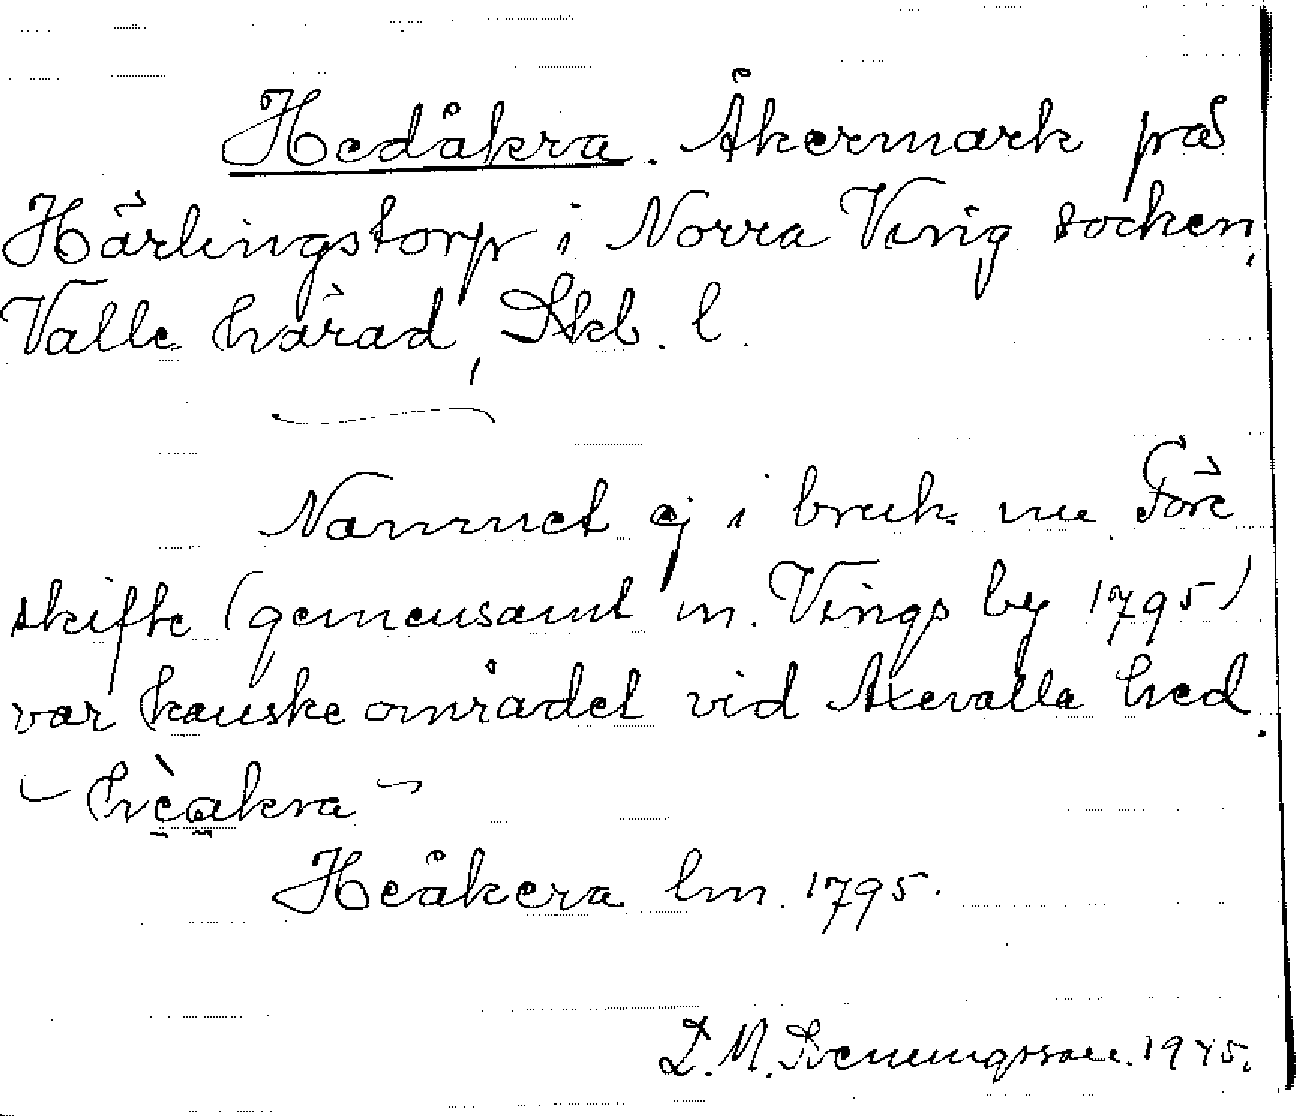 Hedåkra. Åkermark på
Härlingstorp i Norra Ving socken,
Valle härad, Skb. l.
Namnet ej i bruk nu. Före
skifte (gemensamt m. Vings by 1795)
var kanske området vid Axevalla hed.
hèakra
Heåkera lm. 1795.
D. M. 1945.